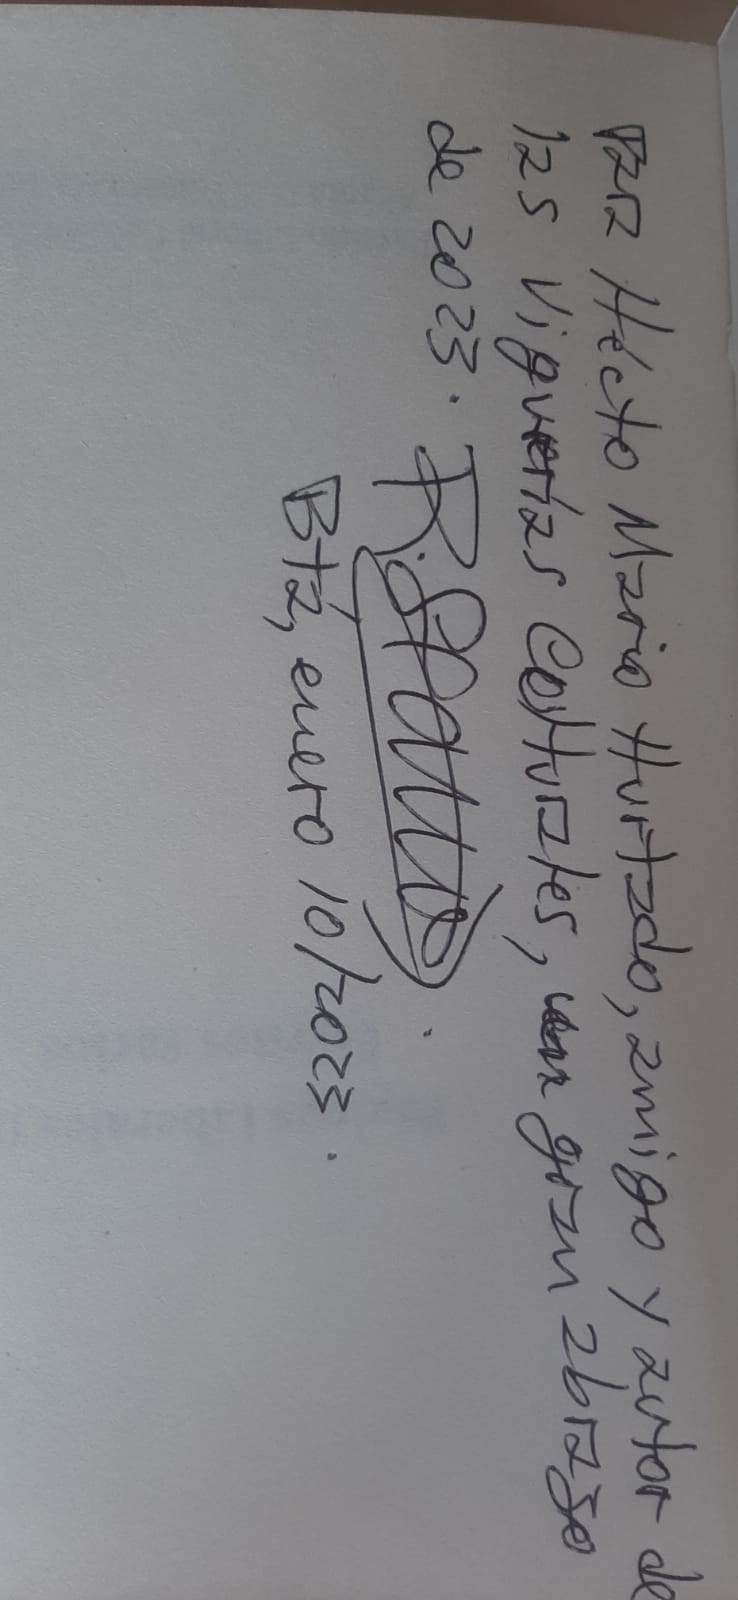 Para Hécto Mario Hurtado, amigo y autor de
las Viguerías Costurales, un gran abrazo
de 2023. R.
Btá, enero 10/2023.